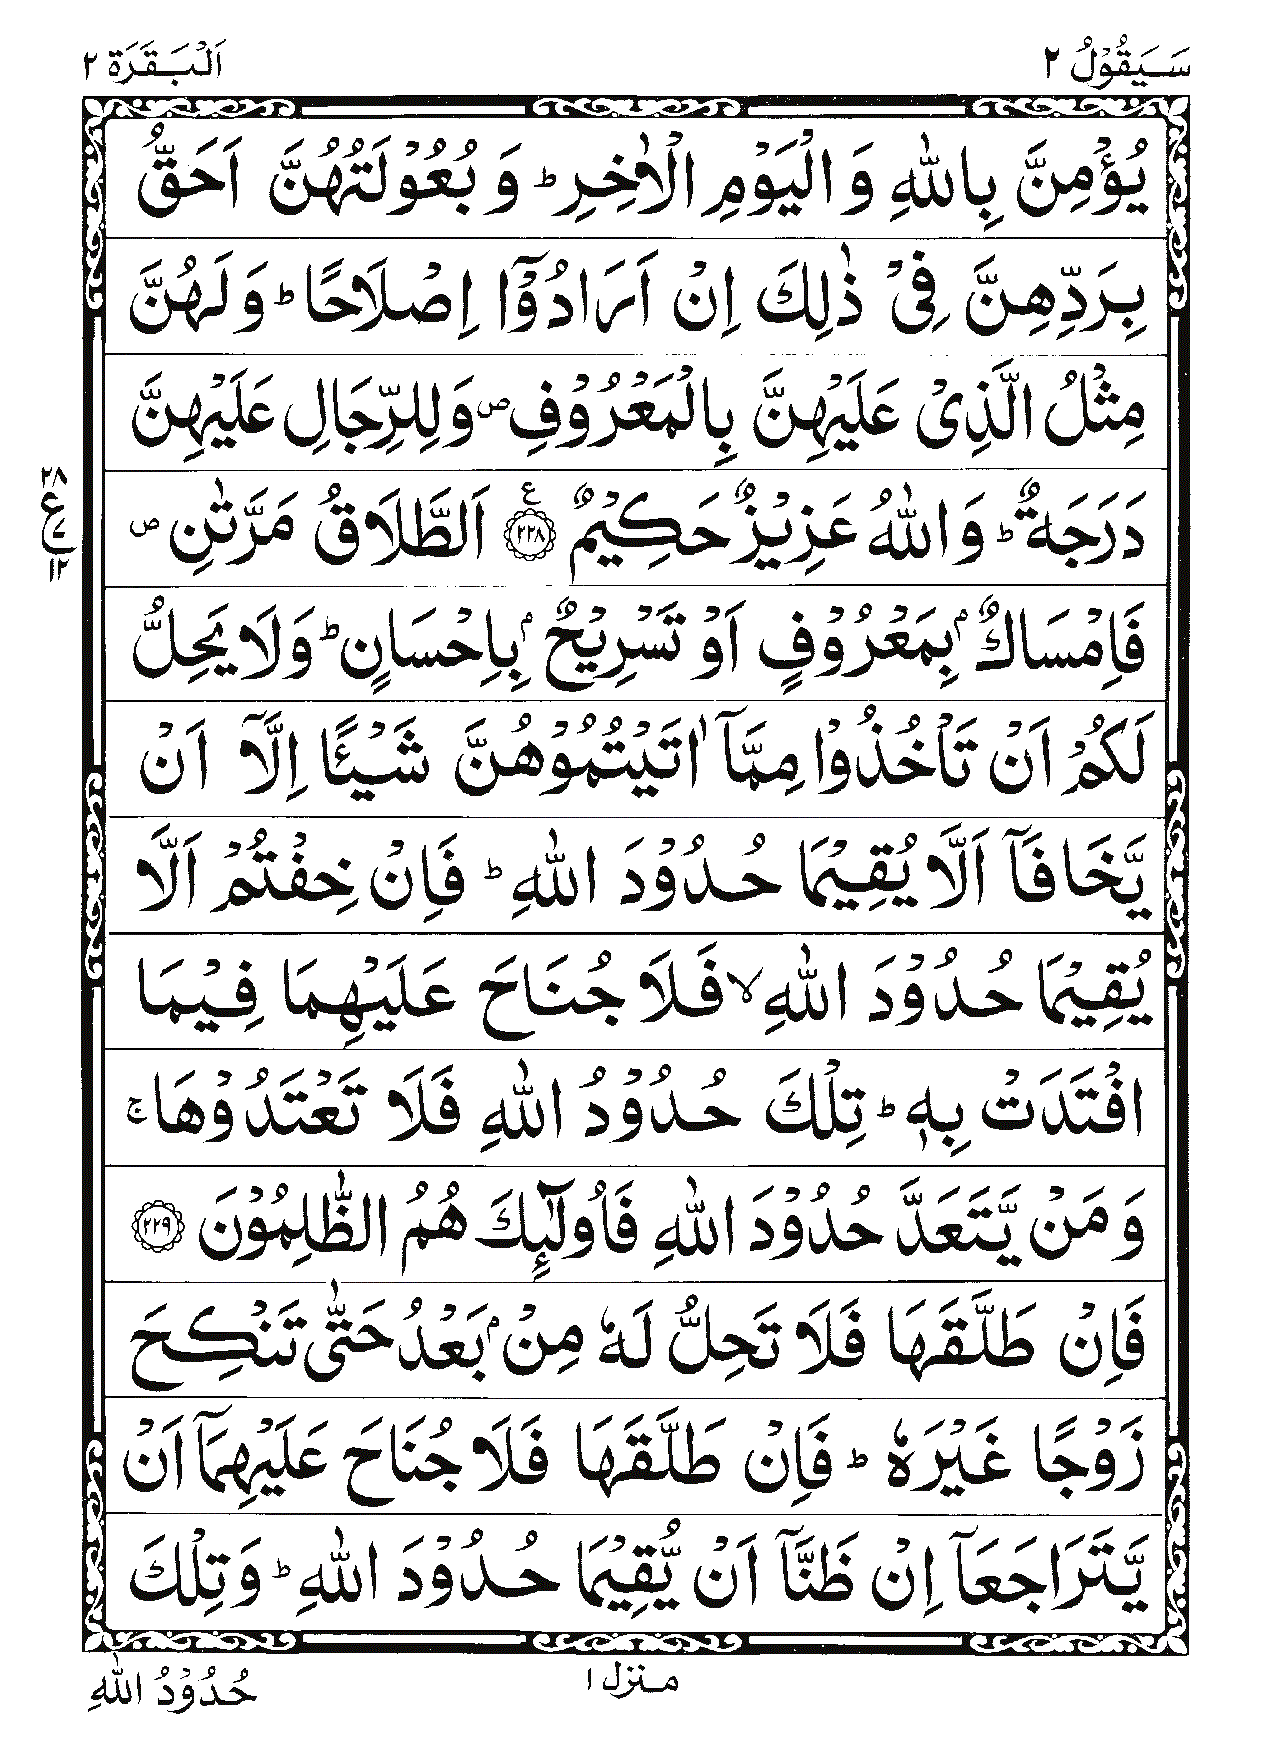 سَيَقُوْلُ ٢
اَلْبَقَرَة ٢
يُؤْمِنَّ بِاللّٰهِ وَ الْيَوْمِ الْاٰخِرِ ؕ وَ بُعُوْلَتُهُنَّ اَحَقُّ
بِرَدِّهِنَّ فِیْ ذٰلِكَ اِنْ اَرَادُوْۤا اِصْلَاحًا ؕ وَ لَهُنَّ
مِثْلُ الَّذِیْ عَلَيْهِنَّ بِالْمَعْرُوْفِ ۪ وَ لِلرِّجَالِ عَلَيْهِنَّ
دَرَجَةٌ ؕ وَ اللّٰهُ عَزِيْزٌ حَكِيْمٌ ع ﴿٢٢٨﴾ اَلطَّلَاقُ مَرَّتٰنِ ۪
٢٨
ع
٧
١٢
فَاِمْسَاكٌۢ بِمَعْرُوْفٍ اَوْ تَسْرِيْحٌۢ بِاِحْسَانٍ ؕ وَ لَا يَحِلُّ
لَكُمْ اَنْ تَاْخُذُوْا مِمَّاۤ اٰتَيْتُمُوْهُنَّ شَيْـًٔا اِلَّاۤ اَنْ
يَّخَافَاۤ اَلَّا يُقِيْمَا حُدُوْدَ اللّٰهِ ؕ فَاِنْ خِفْتُمْ اَلَّا
يُقِيْمَا حُدُوْدَ اللّٰهِ ۙ فَلَا جُنَاحَ عَلَيْهِمَا فِيْمَا
افْتَدَتْ بِهٖ ؕ تِلْكَ حُدُوْدُ اللّٰهِ فَلَا تَعْتَدُوْهَا ۚ
وَ مَنْ يَّتَعَدَّ حُدُوْدَ اللّٰهِ فَاُولٰٓئِكَ هُمُ الظّٰلِمُوْنَ ﴿٢٢٩﴾
فَاِنْ طَلَّقَهَا فَلَا تَحِلُّ لَهٗ مِنْۢ بَعْدُ حَتّٰی تَنْكِحَ
زَوْجًا غَيْرَهٗ ؕ فَاِنْ طَلَّقَهَا فَلَا جُنَاحَ عَلَيْهِمَاۤ اَنْ
يَّتَرَاجَعَاۤ اِنْ ظَنَّاۤ اَنْ يُّقِيْمَا حُدُوْدَ اللّٰهِ ؕ وَ تِلْكَ
منزل ١
حُدُوْدُ اللّٰهِ